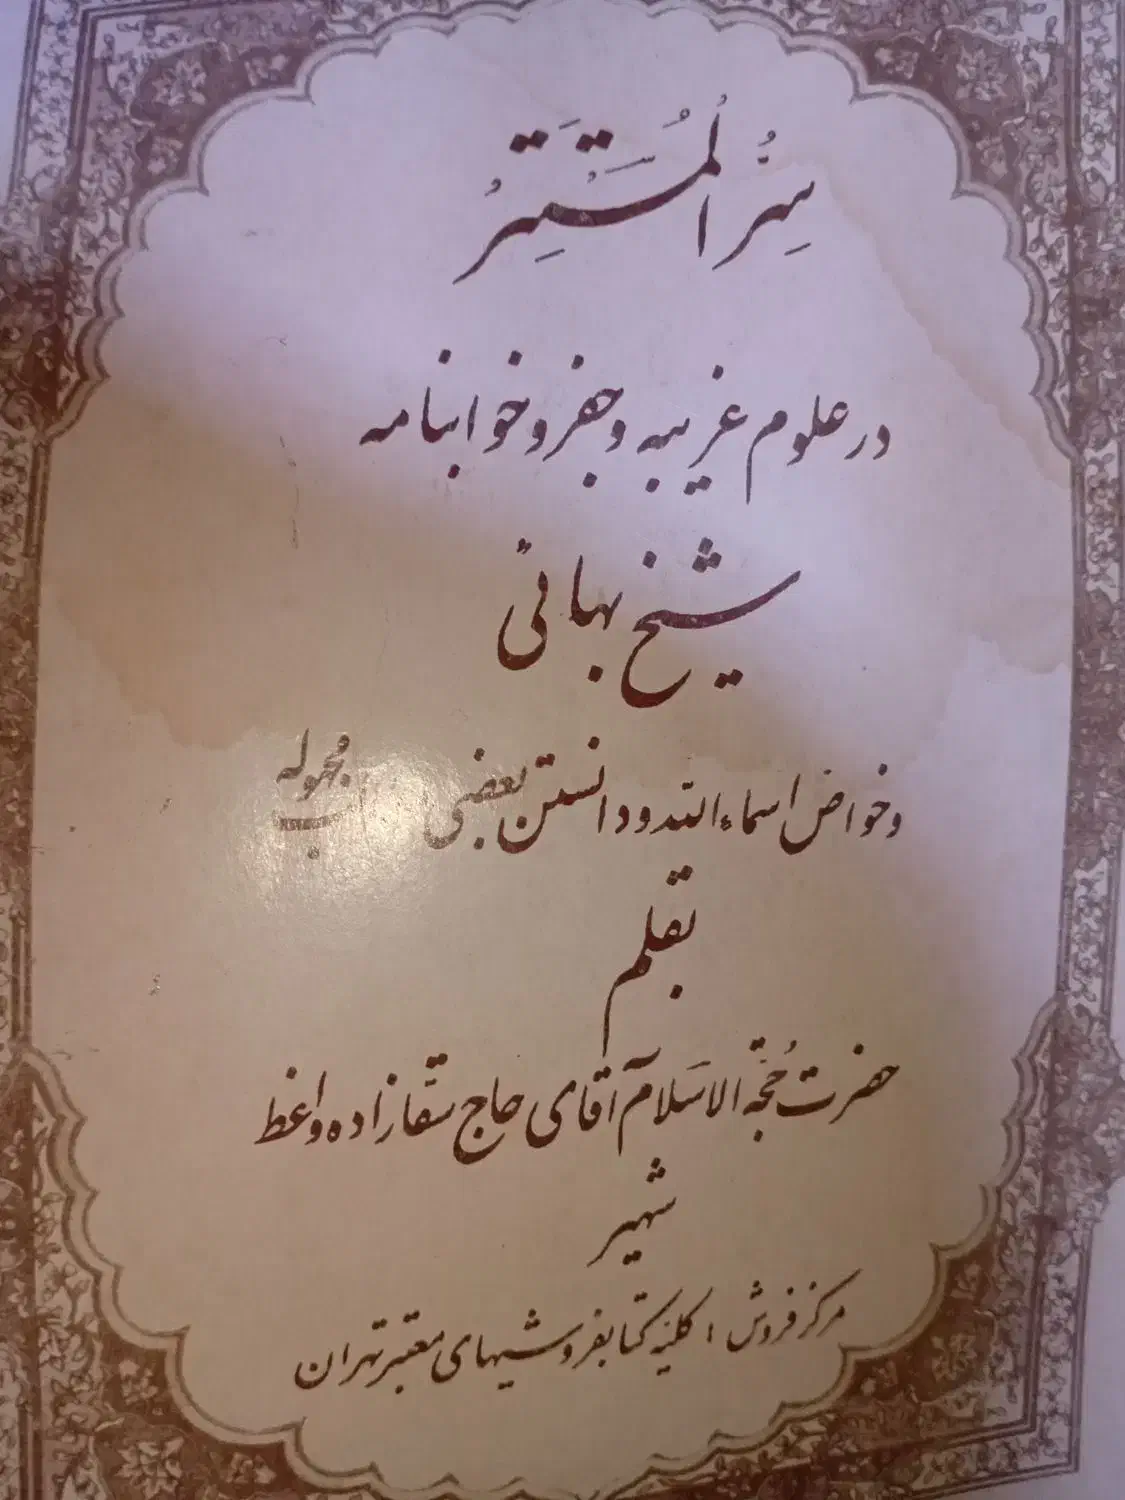 سِرُّ الْمُسْتَتِرُ
در علوم غریبه و جفر و خوابنامه
شیخ بهائی
و خواص اسماء الله و دانستن بعضی مجهوله
بقلم
حضرت حُجَّة الاسَلام آقای حاج سقّازاده واعظ
شهیر
مرکز فروش : کلیّه کتابفروشیهای معتبر تهران